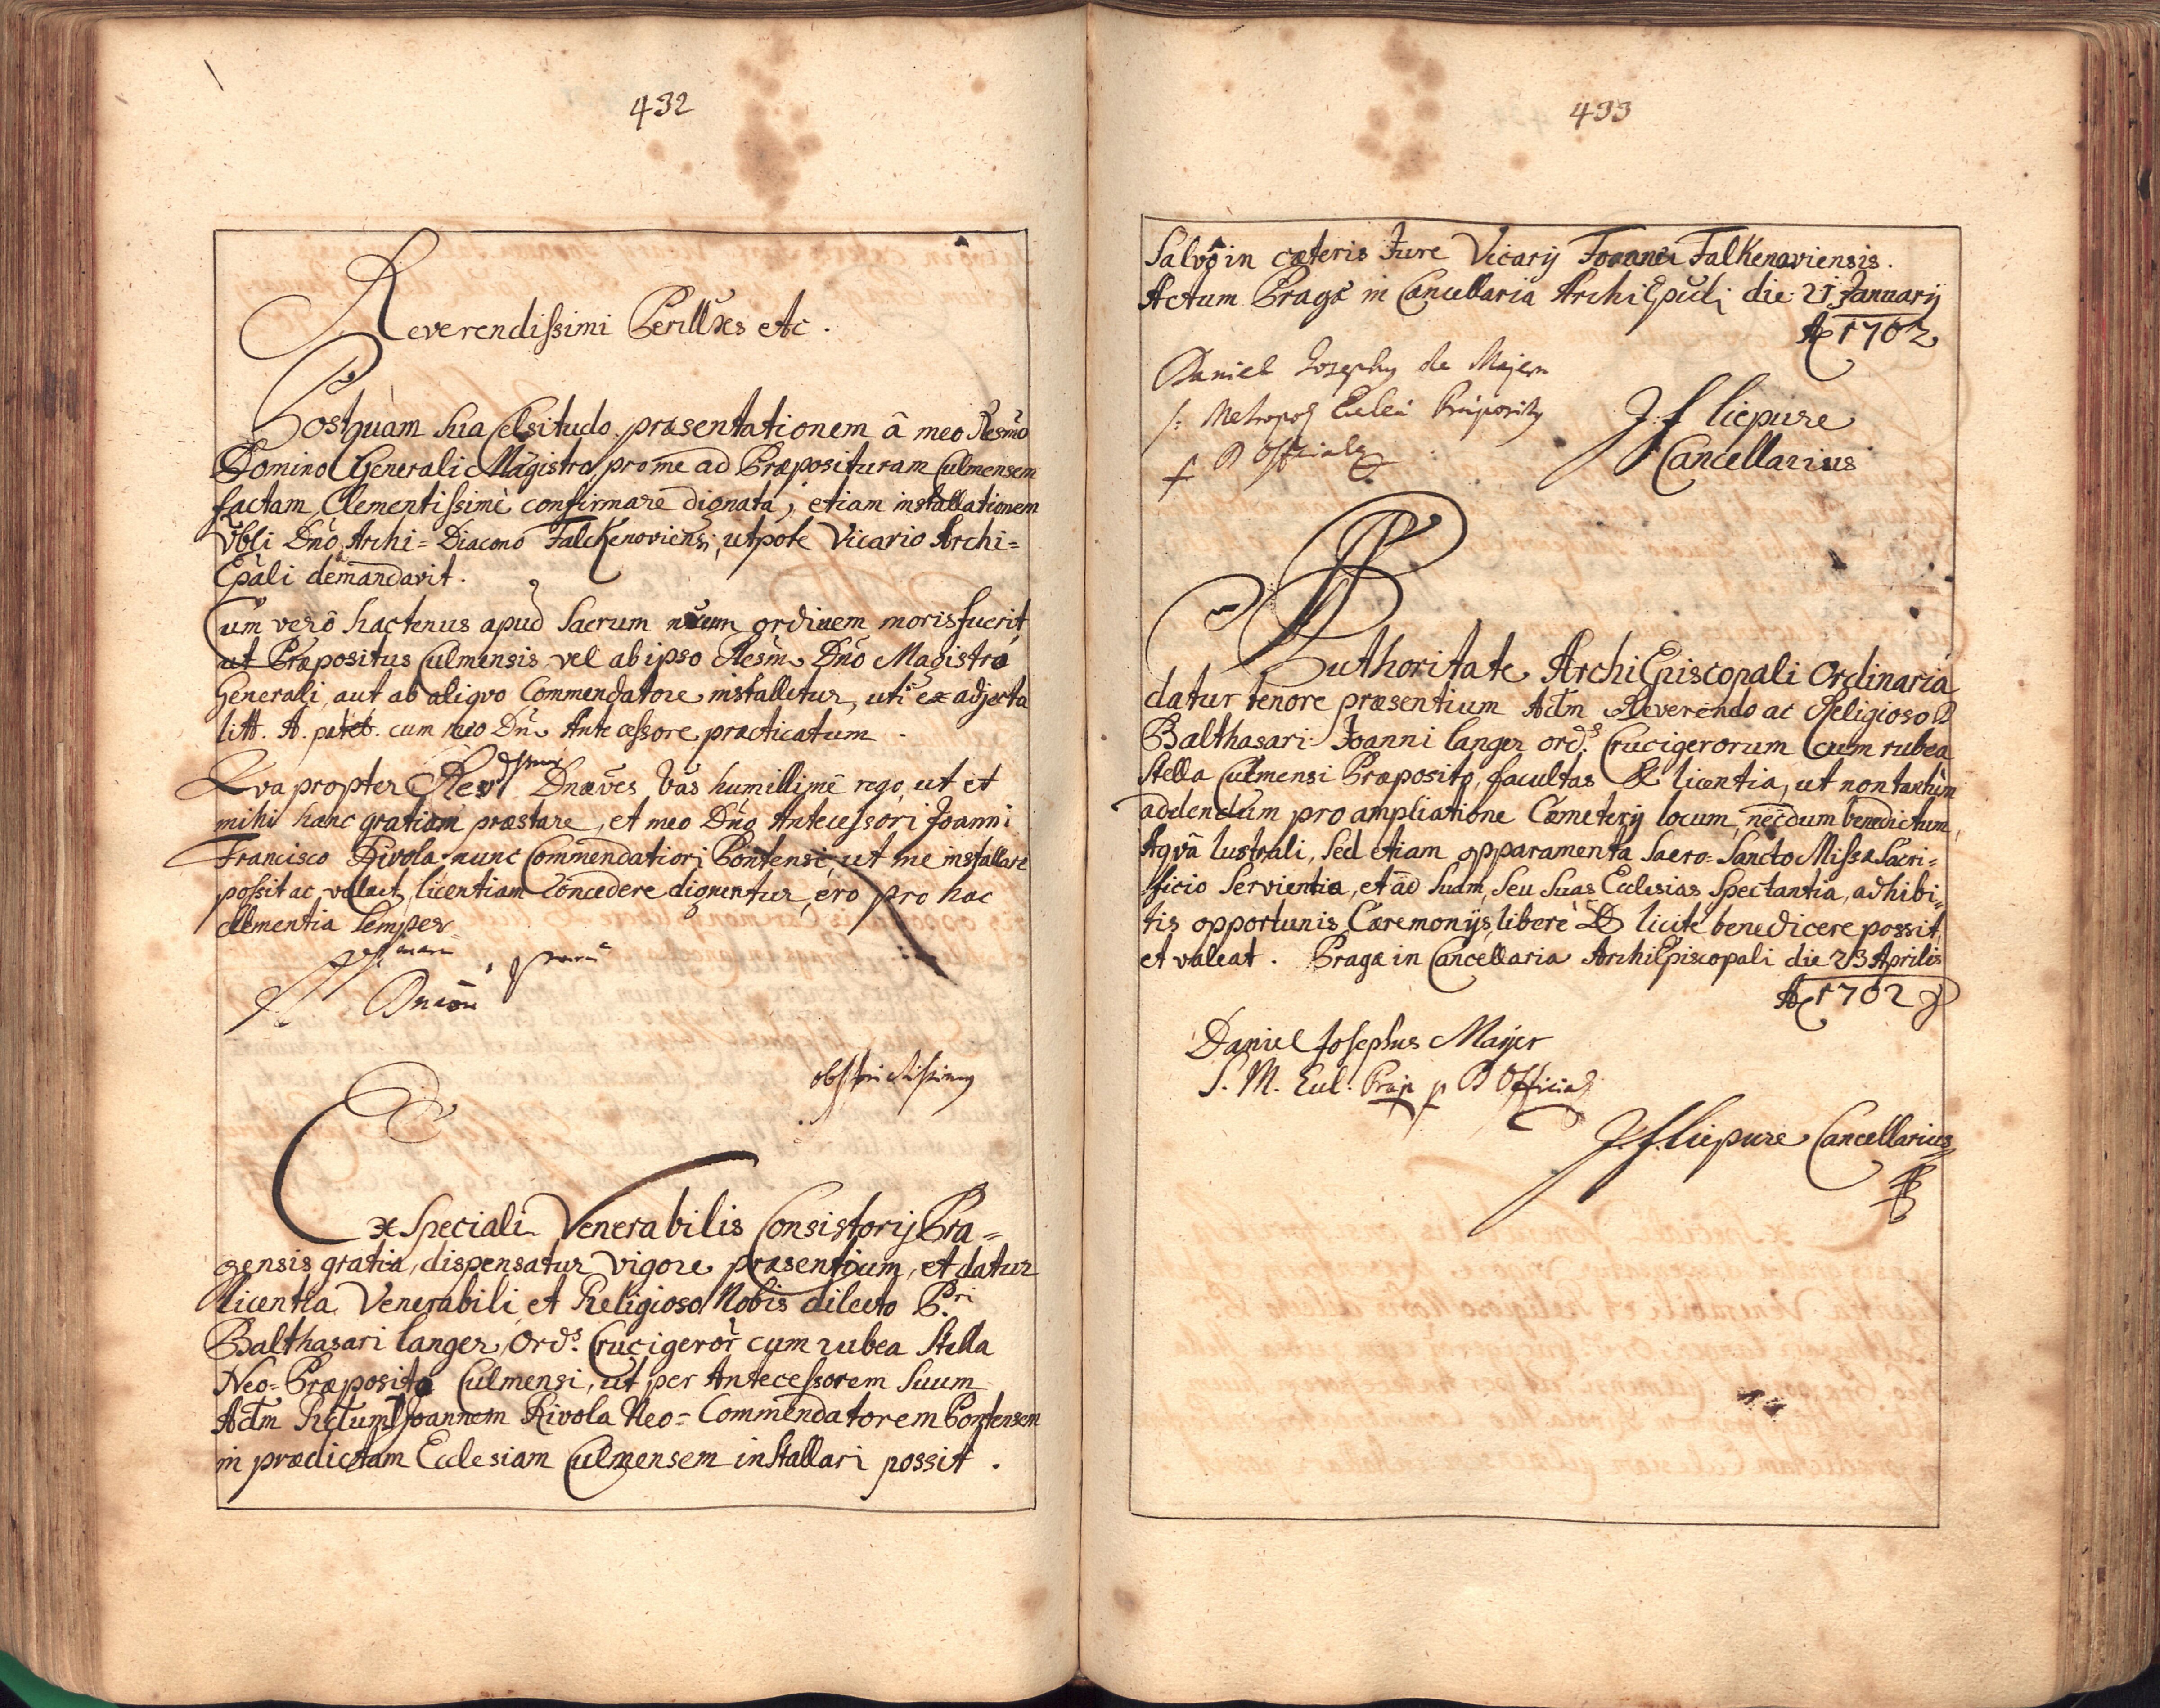 432
Reverendissimi Perillres etc.
Postquam Sua Celsitudo præsentationem â meo Resmo
Domino Generali Magistro pro me ad Præposituram Culmensem
factam, Clementissimè confirmare dignata, etiam installationem
Vbli Dno Archi=Diacono Falckenoviensi, utpote Vicario Archi=
Epali demandavit.
Cum verô hactenus apud Sacrum nrum ordinem moris fuerit,
ut Præpositus Culmensis vel ab ipso Resm Dno Magistro
Generali, aut ab aliqvo Commendatore installetur, uti ex adjecta
litt. A. patet cum meo Dn Antecessore practicatum.
Qva propter Rev Dnaves Vas humillimè rogo, ut et
mihi hanc gratiam præstare, et meo Dno Antecessori Joanni
Francisco Rivola nunc Commendatiori Pontensi, ut me installare
possit ac valeat, licentiam concedere dignentur, ero pro hac
clementia Semper
obstrictissimus
Ex Speciali Venerabilis Consistorij Pra=
gensis gratia, dispensatur vigore præsentium, et datur
licentia Venerabili et Religioso Nobis dilecto P.ri
Balthasari Langer Ord.s Crucigeror cum rubea Stella
Neo=Præposito Culmensi, ut per Antecessorem Suum
Adm Rdum Joannem Rivola Neo=Commendatorem Pontensem
in prædictam Ecclesiam Culmensem installari possit.
433
Salvo in cæteris Jure Vicarij Foranei Falkenoviensis.
Actum Pragæ in Cancellaria ArchiEpuli die 21 January
A 1702
Daniel Josephus de Mayern
S: Metropol Eccleæ Præpositus
Officialis
J. f liepure
Cancellarius
Authoritate ArchiEpiscopali Ordinaria
datur tenore præsentium Adm Reverendo ac Religioso P
Balthasari Joanni Langer ord.s Crucigerorum cum rubea
Stella Culmensi Præposito, facultas & licentia, ut non tantùm
addendum pro ampliatione Cæmeterij locum, necdum benedictum,
Aqvâ lustrali, Sed etiam apparamenta Sacro=Sancto Missæ Sacri=
ficio Servientia, et ad Suam, Seu Suas Ecclesias Spectantia, adhibi=
tis opportunis Cæremonijs, liberè & licitè benedicere possit,
et valeat. Pragæ in Cancellaria ArchiEpiscopali die 23 Aprilis
A 1702
Daniel Josephus Mayer
S. M. Eccl. Præp p O Official
J. f. liepure Cancellarius